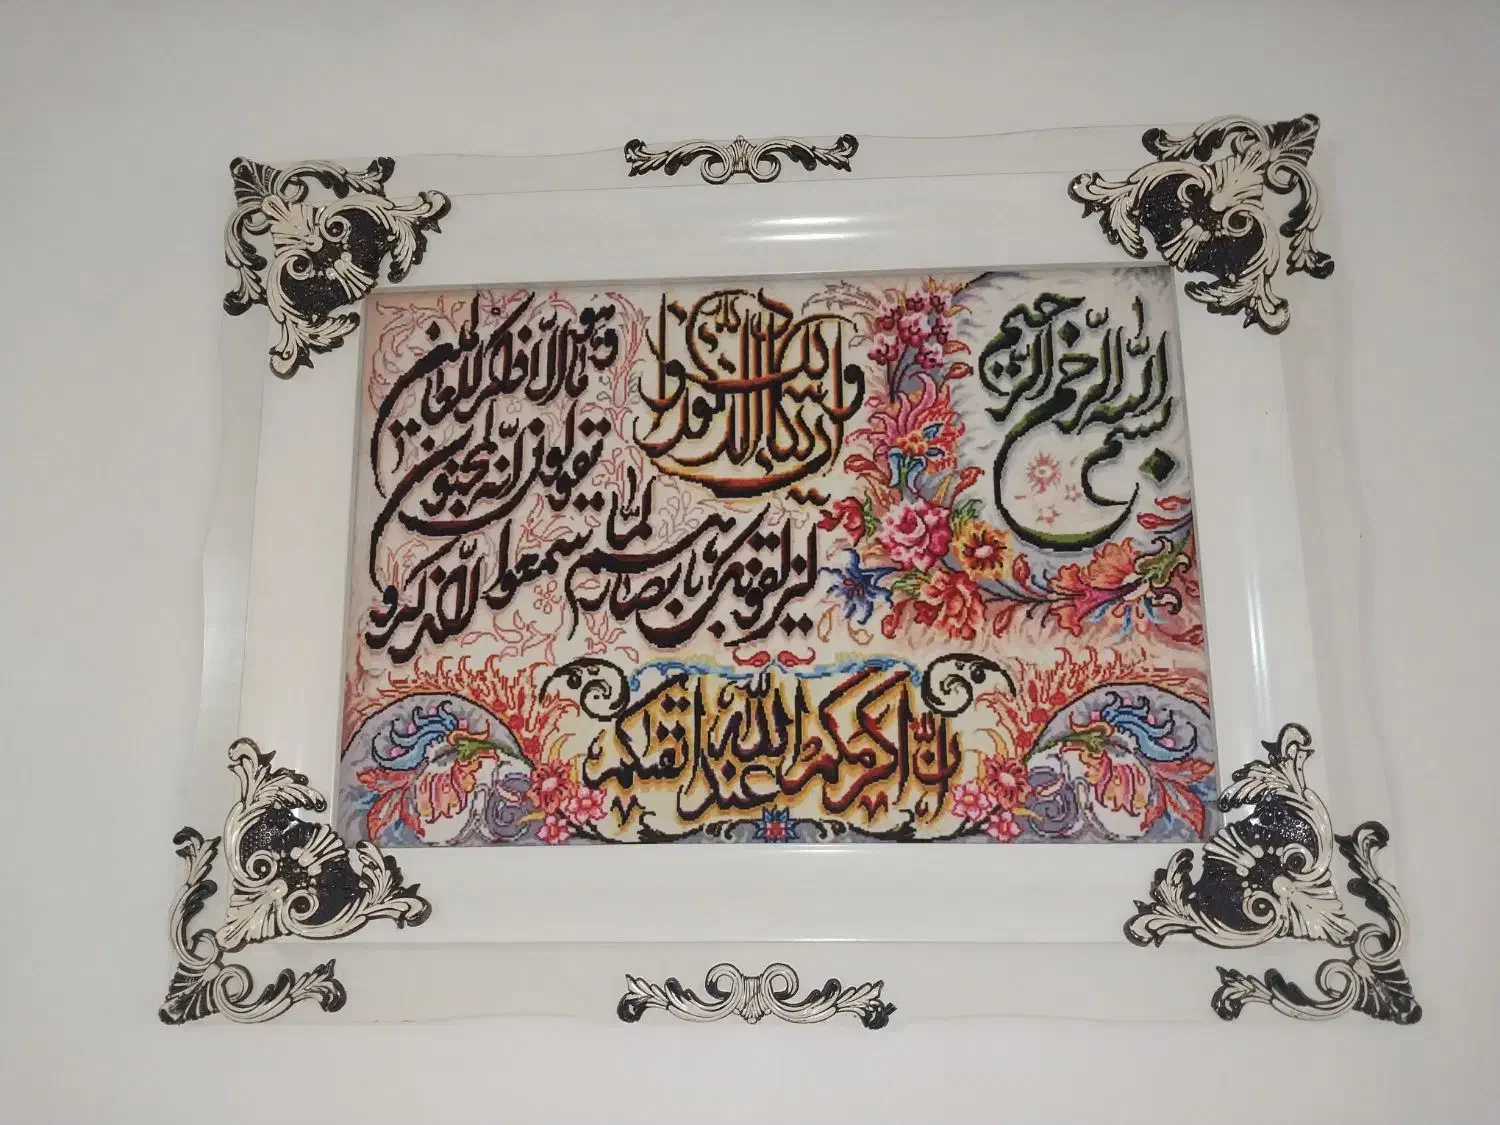 بسم الله الرحمن الرحيم
وان يكاد الذين كفروا
ليزلقونك بابصارهم لما سمعوا الذكر و
يقولون انه لمجنون
و ما هو الا ذكر للعالمين
ان اكرمكم عند الله اتقيكم